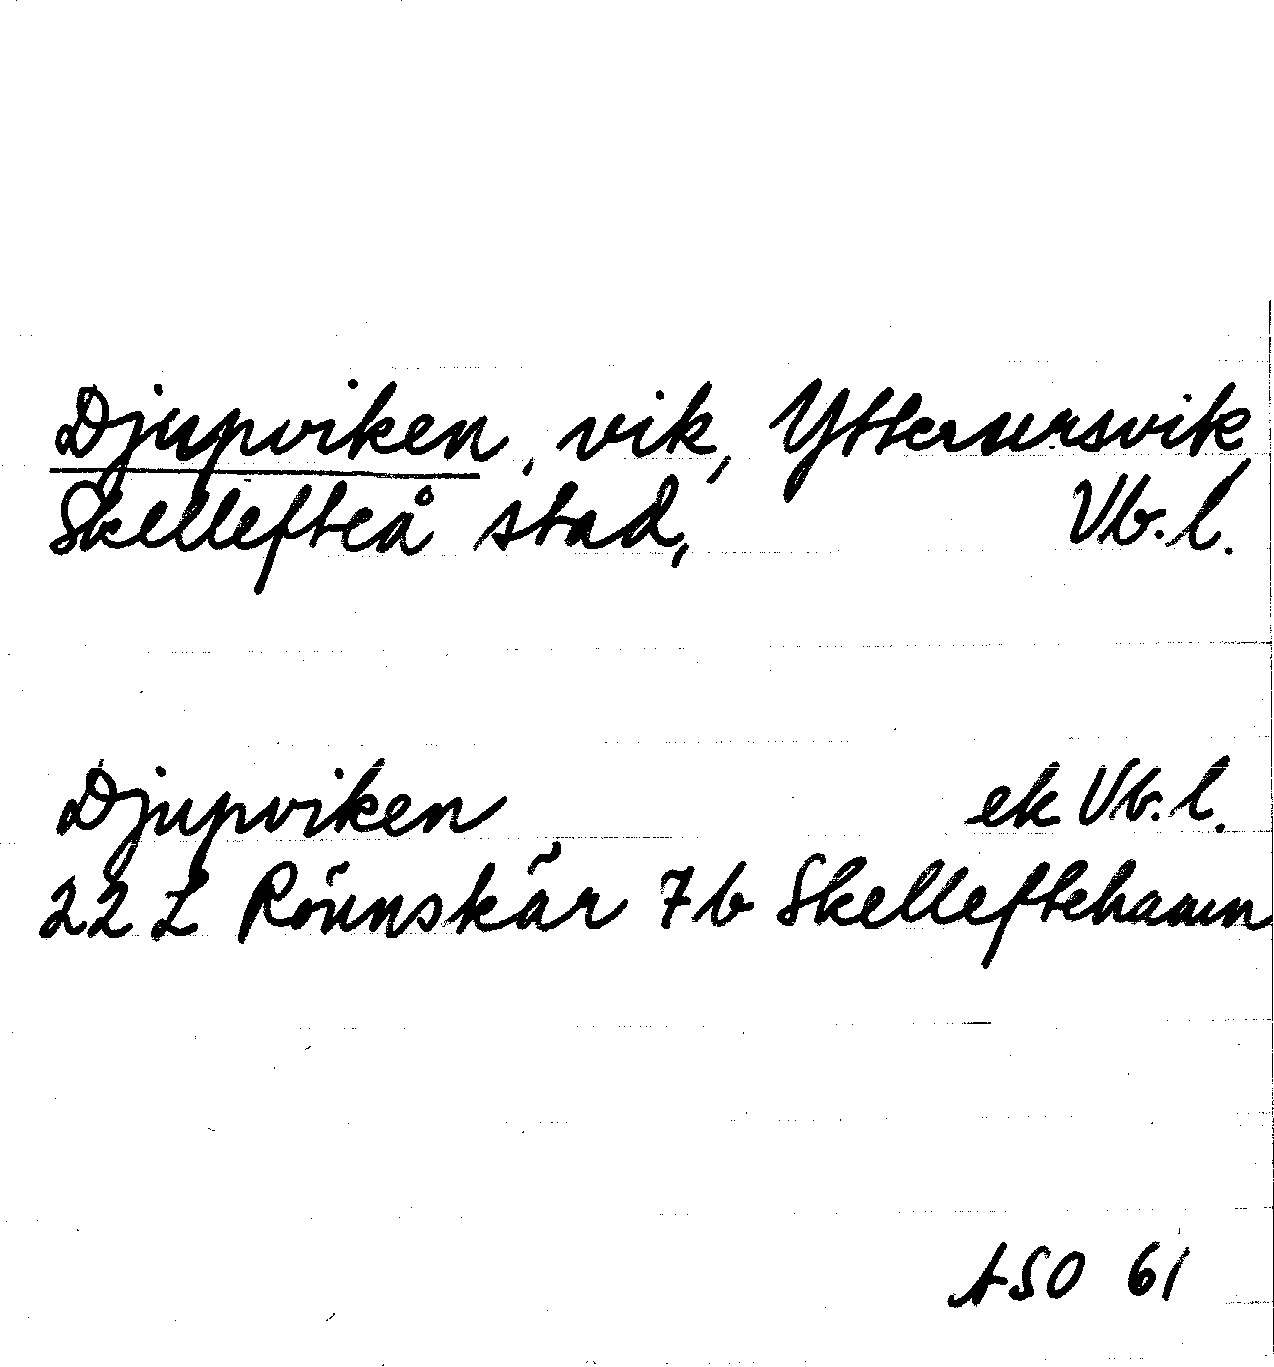 Djupviken, vik, Yttersursvik
Skellefteå stad, Vb. l.
Djupviken ek Vb. l.
22 L Rönnskär 7b Skelleftehamn
ASO 61